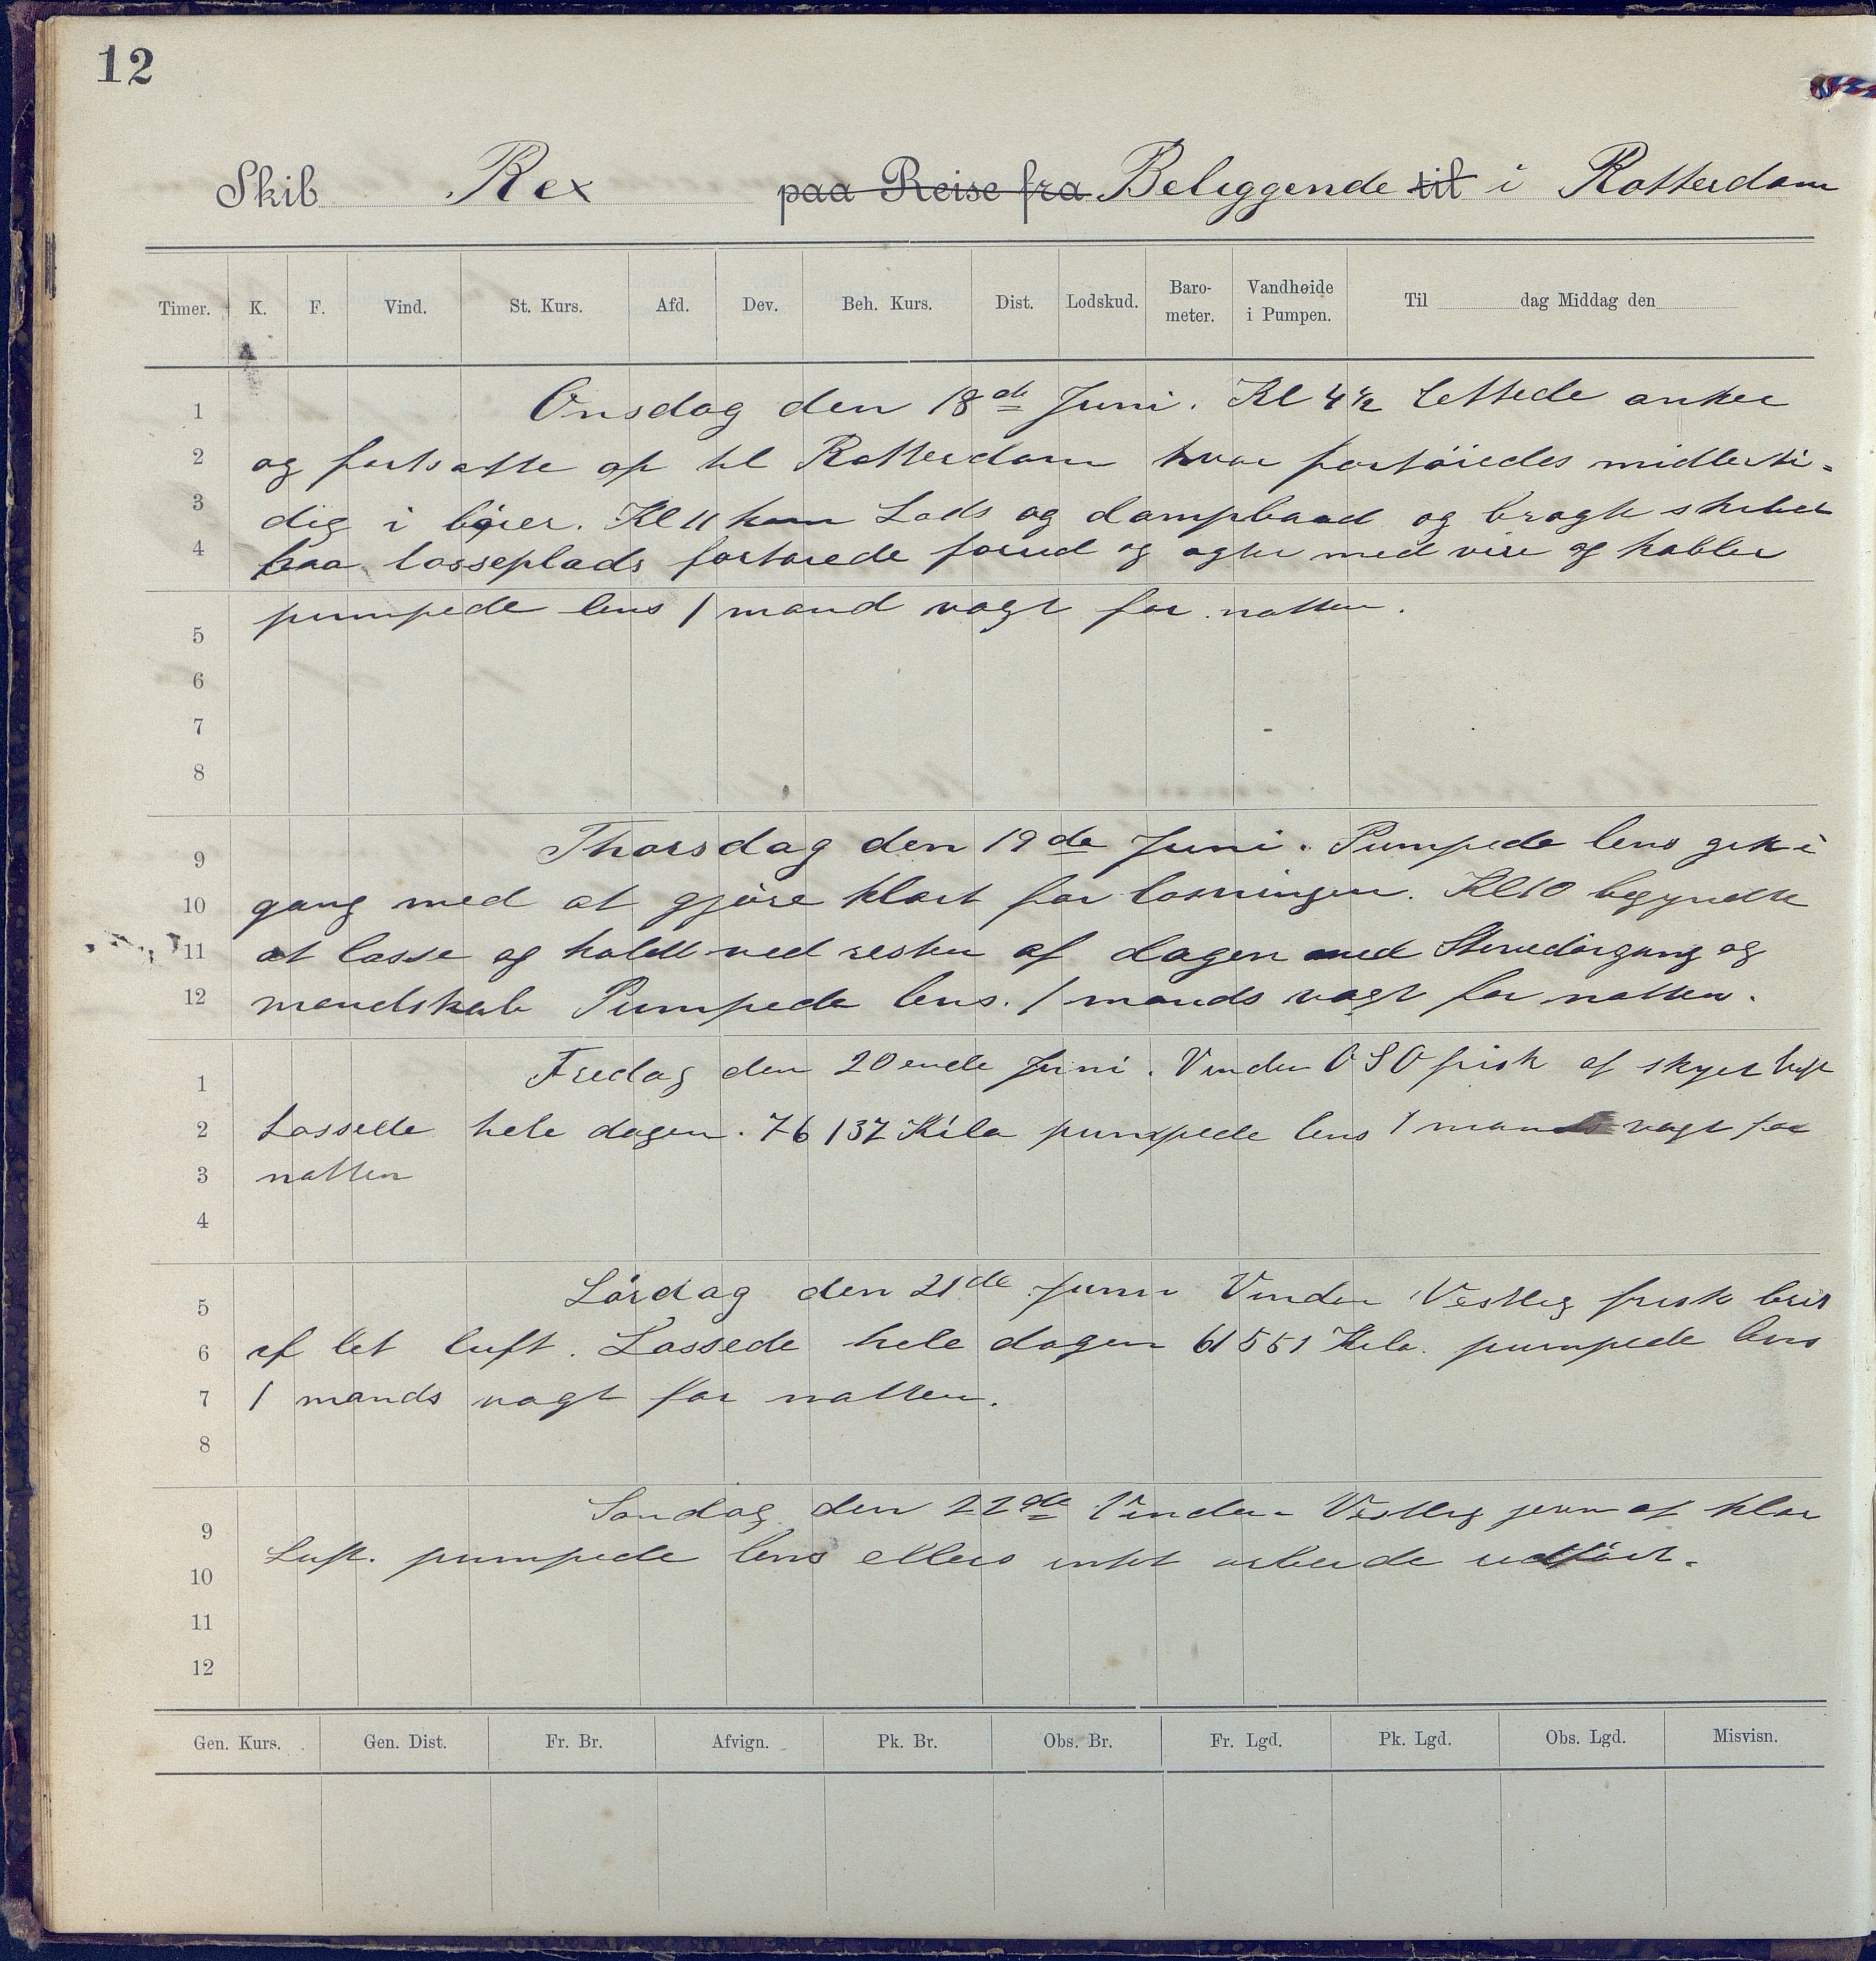 12
Skib Rex paa Reise fra Beliggende til i Rotterdam
Timer. K. F. Vind. St. Kurs. Afd. Dev. Beh. Kurs. Dist. Lodskud. Baro-meter. Vandhøide i Pumpen. Til dag Middag den
1 Onsdag den 18de Juni. Kl 4½ lettede anker
2 og fortsatte op til Rotterdam hvor fortöiedes midlerti-
3 dig i böier. Kl 11 kom Lods og dampbaad og bragte skibet
4 paa losseplads fortöiede forud og agter med vire og kabler
pumpede lens 1 mand vagt for natten.
5
6
7
8
9 Thorsdag den 19de Juni. Pumpede lens gik i
10 gang med at gjöre klart for losningen. Kl 10 begyndte
11 at losse og holdt ved resten af dagen med Stuedorgang og
12 mandskab Pumpede lens. 1 mands vagt for natten.
1 Fredag den 20ende Juni. Vinden OSO frisk af skyet luft
2 Lossede hele dagen. 76137 Kilo pumpede lens 1 mands vagt for
3 natten
4
5 Lördag den 21de Juni Vinden Vestlig frisk bris
6 af let luft. Lossede hele dagen 61551 Kilo. pumpede lens
7 1 mands vagt for natten.
8
9 Sondag den 22de Vinden Vestlig jevn af klar
10 Luft. pumpede lens ellers intet arbeide udfört.
11
12
Gen. Kurs. Gen. Dist. Fr. Br. Afvign. Pk. Br. Obs. Br. Fr. Lgd. Pk. Lgd. Obs. Lgd. Misvisn.